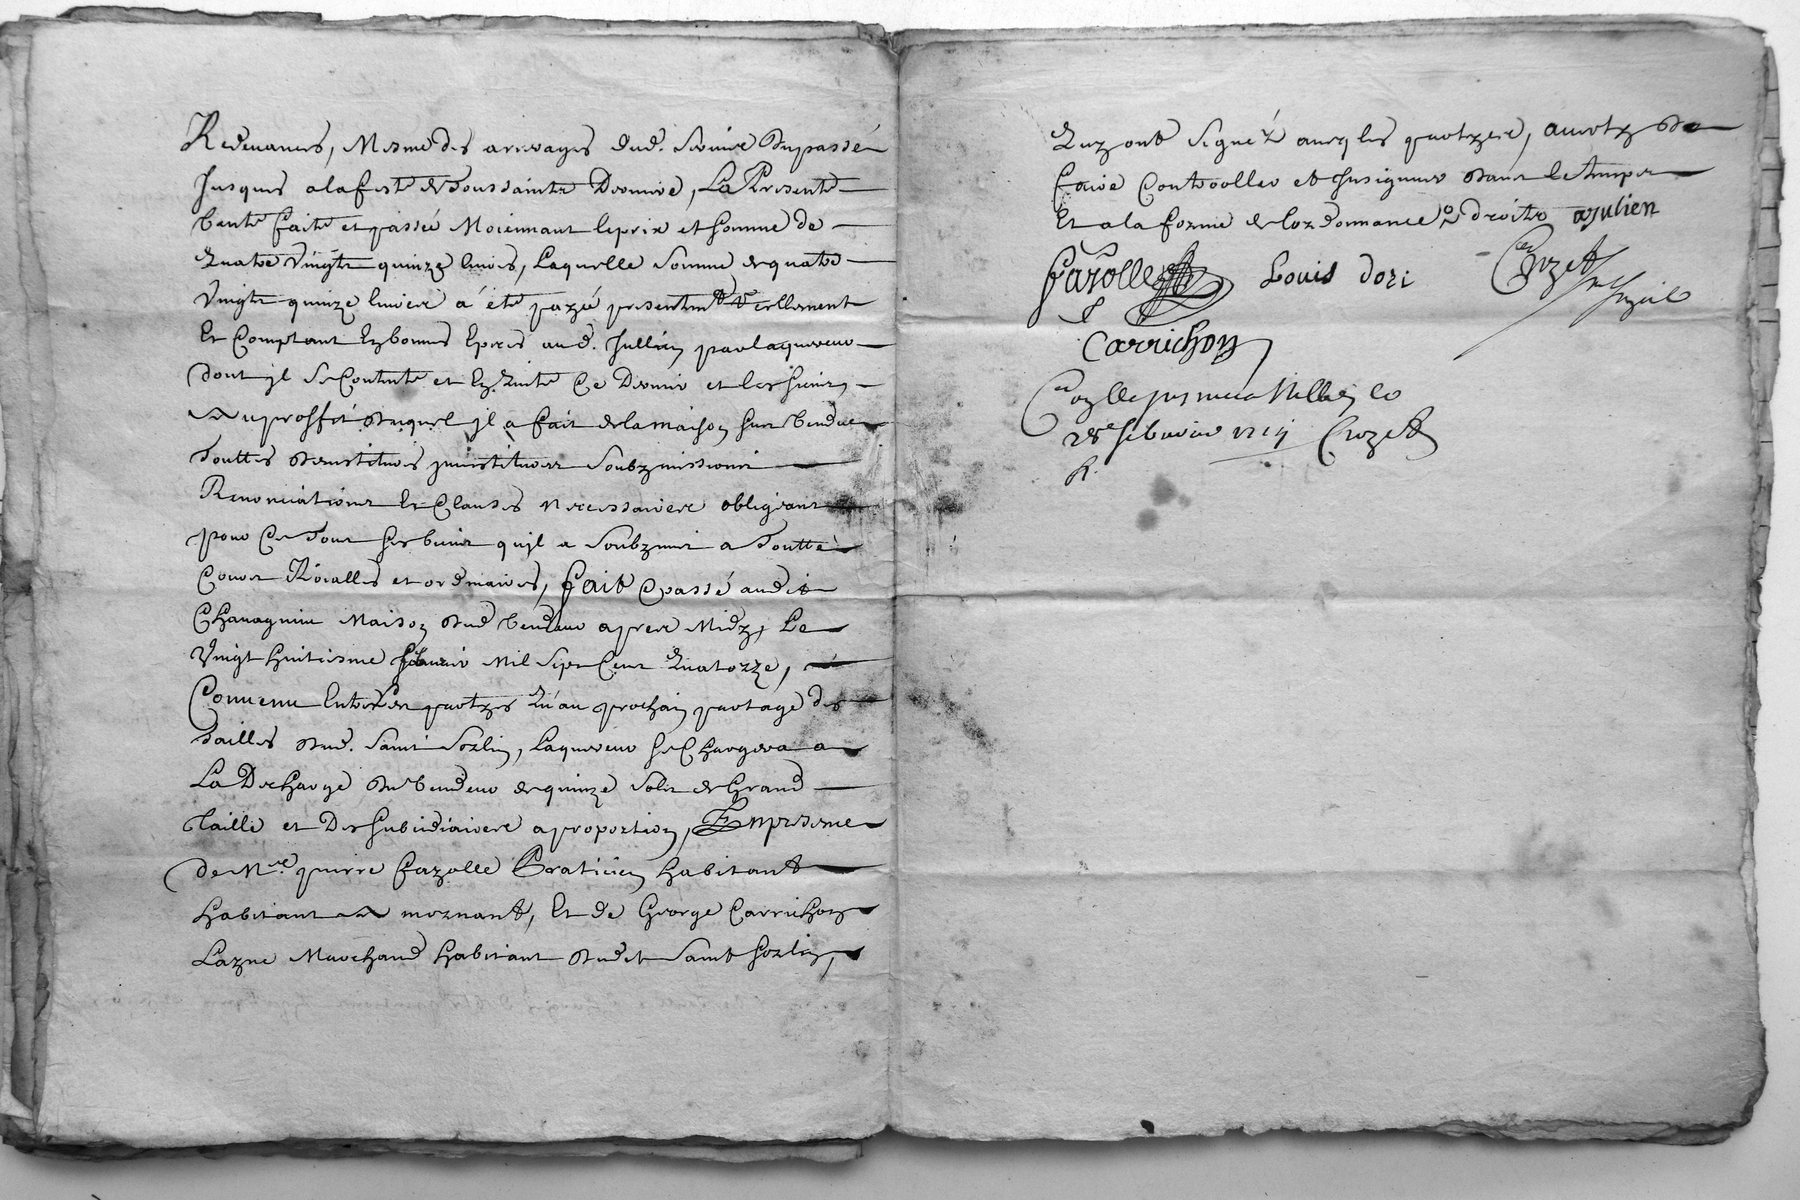 Redevances, Mesme des arrerages dud. Servic du passé
Jusques a la feste de Toussaints Derniere, La Presente
Vente faite et passée Moiennant le prix et somme de
Quatre Vingts quinze livres, Laquelle Somme de quatre
Vingts quinze livres a été payé presentemt reellement
Et Comptant En bonnes Especes aud. Jullien par lacquereur
dont il se Contente et En quitte Ce Dernier et les siens
Au proffit duquel il a fait de la maison sus Vendue
Touttes devestitures investitures Soubzmissions
Renonciations Et Clauses Necessaires obligeant
pour Ce Tous ses biens quil a Soubzmis a Toutte
Cours Roialles et ordinaires, fait & passé audit
Chavagnieu Maison dud Vendeur apres Midy, Le
Vingt huitiesme febvrier Mil Sept Cent Quatorze,
Convenu Entre les parties Qu'au prochain partage des
Tailles dud. Saint Sorlin, Lacquereur se Chargera a
La Decharge du Vendeur de quinze sols de Grand
Taille et Des subsidiaires a proportion, En presence
de Mre. pierre fayolle Praticien habitant
habitant a mornant, Et de George Carrichon
Layne Marchand habitant dudit Saint Sorlin,
Qui ont Signéz avec les parties, averty de
faire Controoller et Insignuer dans le temps
Et a la forme de lordonnance droits ajulien
fayolle Louis dori Crozet
Carrichon
febvrier Crozet
R.